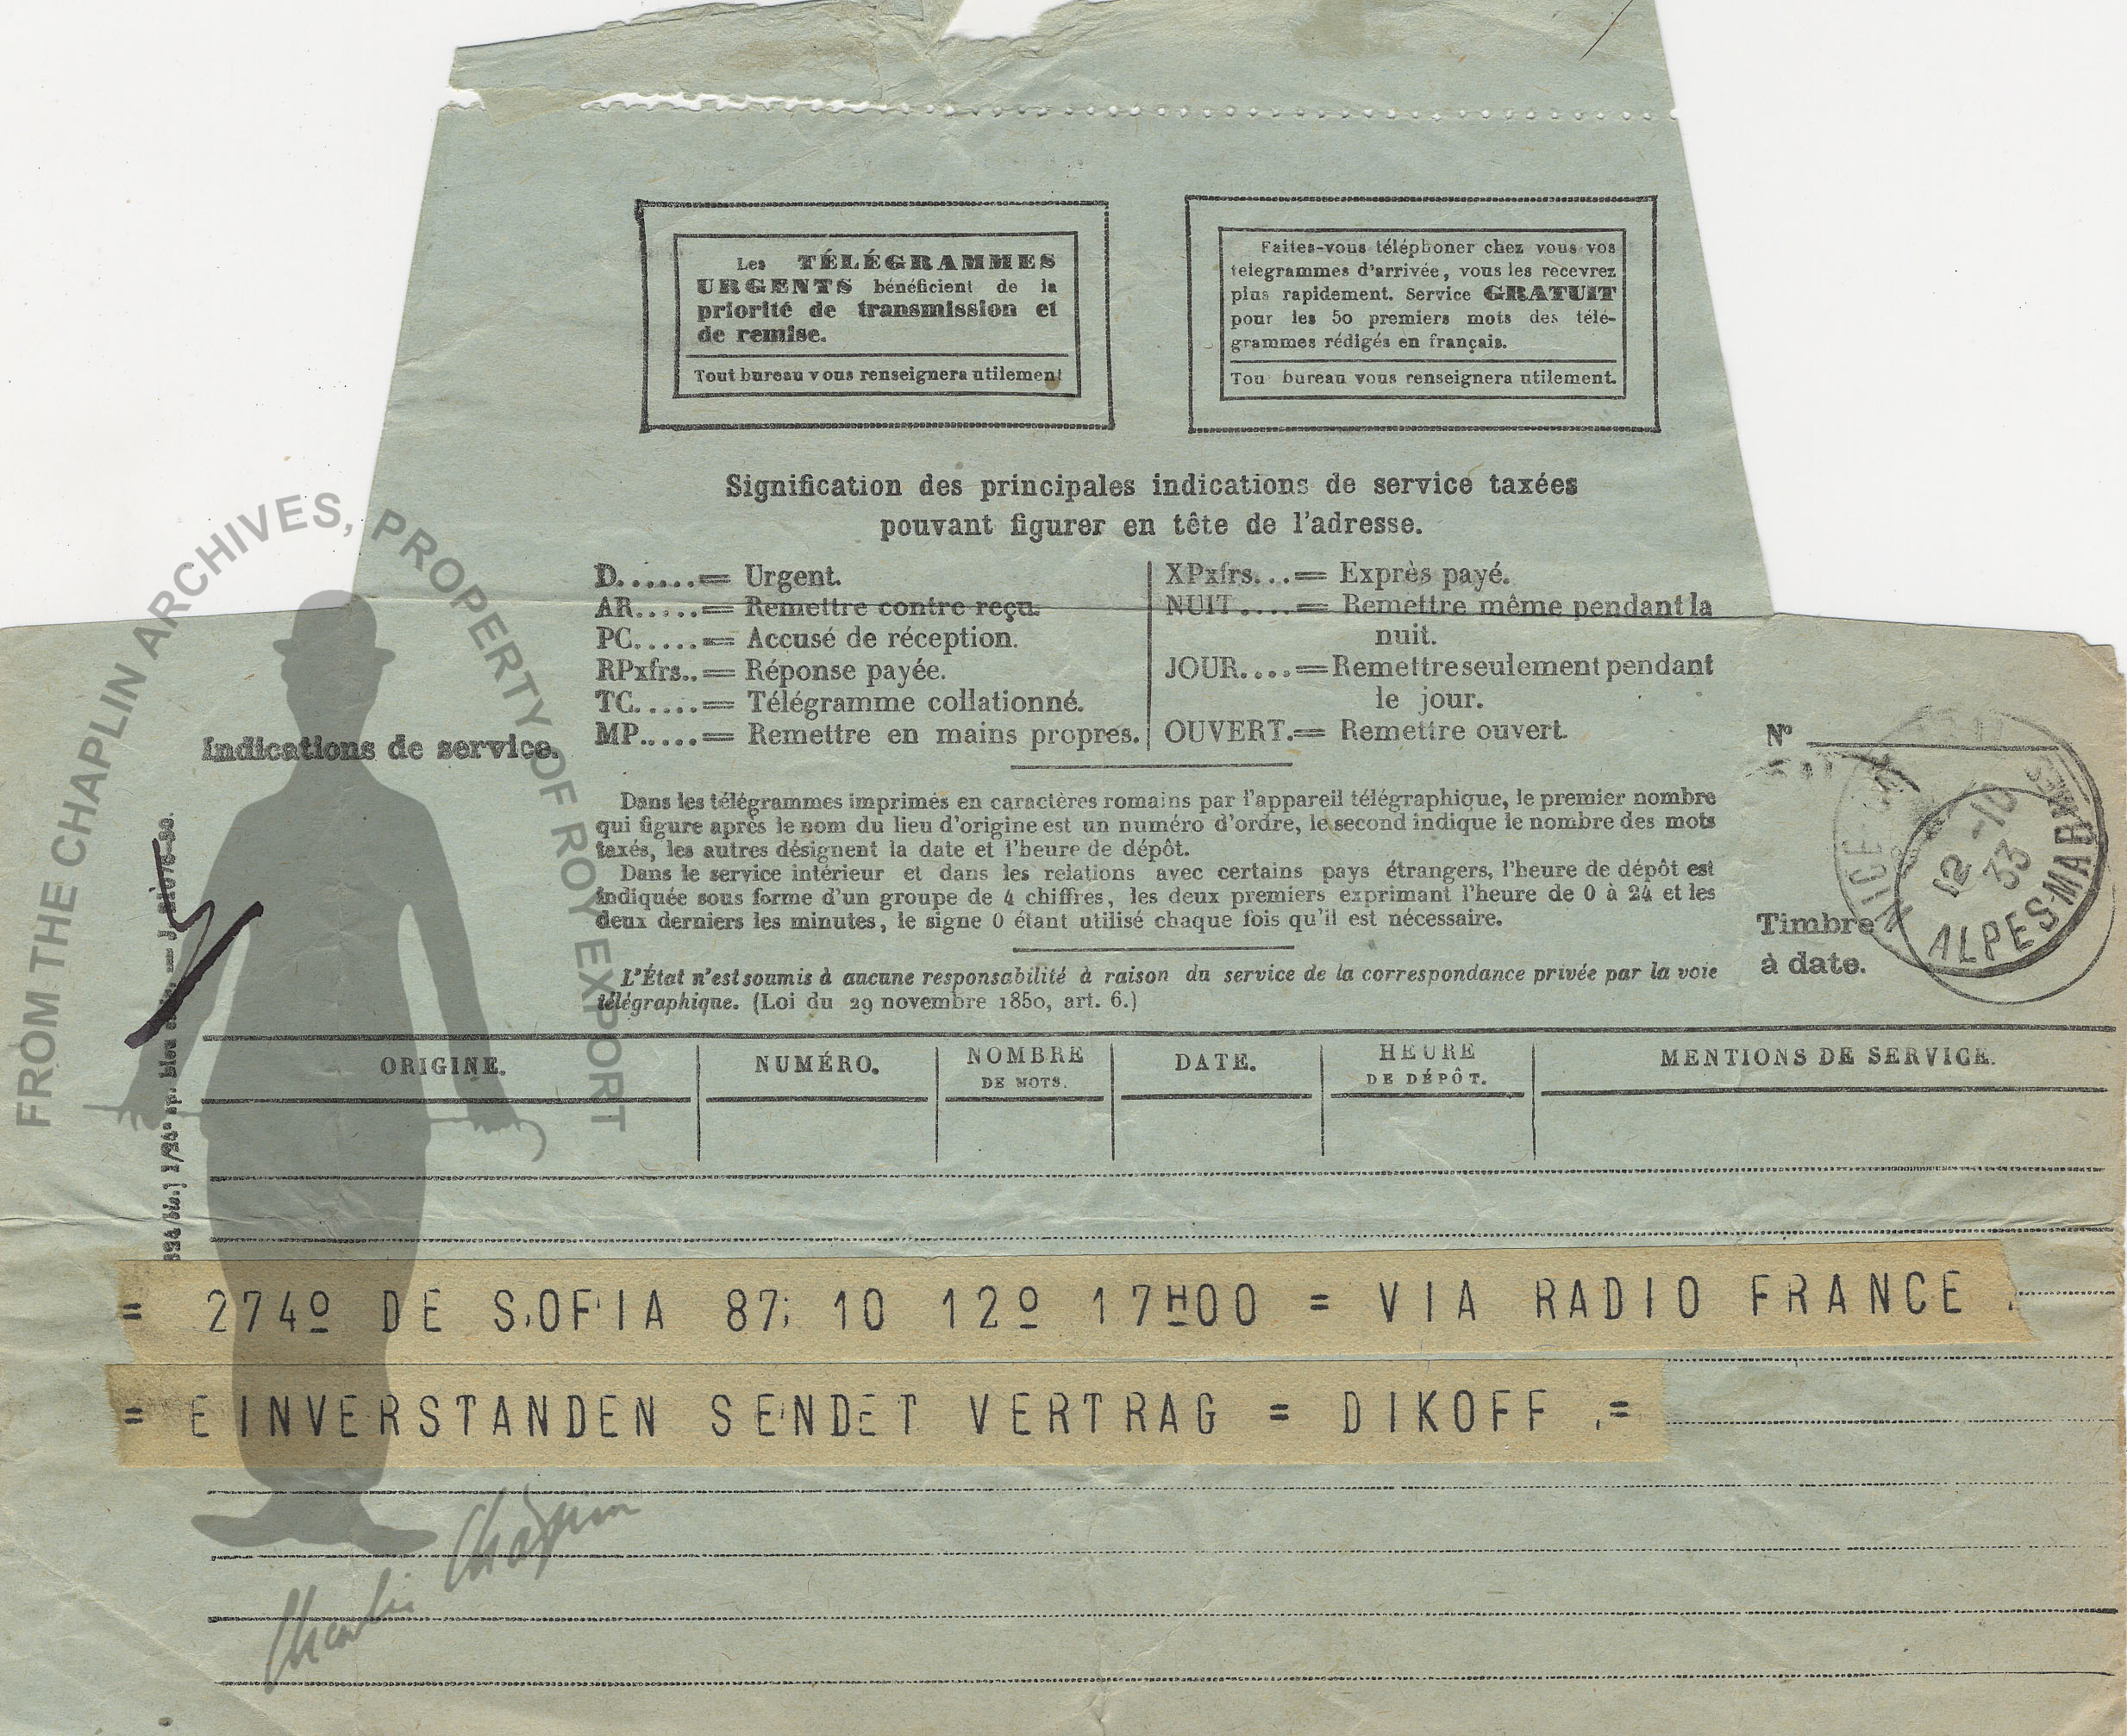 Les TÉLÉGRAMMES
URGENTS bénéficient de la
priorité de transmission et
de remise.
Tout bureau vous renseignera utilement
Faites-vous téléphoner chez vous vos
telegrammes d'arrivée, vous les recevrez
plus rapidement. Service GRATUIT
pour les 50 premiers mots des télé-
grammes rédigés en français.
Tou bureau vous renseignera utilement.
Signification des principales indications de service taxées
pouvant figurer en tête de l'adresse.
D......= Urgent.
AR.....= Remettre contre reçu.
PC.....= Accusé de réception.
RPxfrs..= Réponse payée.
TC.....= Télégramme collationné.
MP.....= Remettre en mains propres.
XPxfrs...= Exprès payé.
NUIT....= Remettre même pendant la
nuit.
JOUR....= Remettre seulement pendant
le jour.
OUVERT.= Remettre ouvert.
Indications de service.
Nº
Dans les télégrammes imprimés en caractères romains par l'appareil télégraphique, le premier nombre
qui figure après le nom du lieu d'origine est un numéro d'ordre, le second indique le nombre des mots
taxés, les autres désignent la date et l'heure de dépôt.
Dans le service intérieur et dans les relations avec certains pays étrangers, l'heure de dépôt est
indiquée sous forme d'un groupe de 4 chiffres, les deux premiers exprimant l'heure de 0 à 24 et les
deux derniers les minutes, le signe 0 étant utilisé chaque fois qu'il est nécessaire.
L'État n'est soumis à aucune responsabilité à raison du service de la correspondance privée par la voie
télégraphique. (Loi du 29 novembre 1850, art. 6.)
Timbre
à date.
NICE
12 -10
33
ALPES-MARMES
ORIGINE.
NUMÉRO.
NOMBRE
DE MOTS.
DATE.
HEURE
DE DÉPÔT.
MENTIONS DE SERVICE.
= 274º DE SOFIA 87 10 12º 17H00 = VIA RADIO FRANCE .
= EINVERSTANDEN SENDET VERTRAG = DIKOFF .=
FROM THE CHAPLIN ARCHIVES, PROPERTY OF ROY EXPORT
Charlie Chaplin